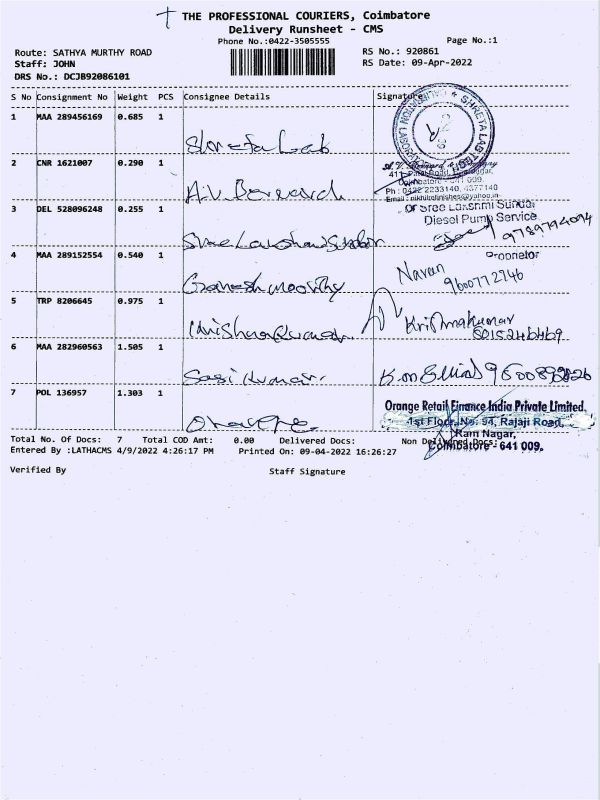 THE PROFESSIONAL COURIERS, Coimbatore
Delivery Runsheet - CMS
Phone No.:0422-3505555
Page No.:1
Route: SATHYA MURTHY ROAD
RS No.: 920861
Staff: JOHN
RS Date: 09-Apr-2022
DRS No.: DCJB92086101
S No Consignment No Weight PCS Consignee Details Signature
1 MAA 289456169 0.685 1
SHRETA LAB TECH
2 CNR 1621007 0.290 1 A.V. Bernard
641 009.
Ph : 0422 2233140, 4377140
3 DEL 528096248 0.255 1
Or Sree Lakshmi Sundar
Diesel Pump Service
Proprietor
4 MAA 289152554 0.540 1 Ganesh moorthy
Navan
9600772746
5 TRP 8206645 0.975 1
Krishnakumar
6 MAA 282960563 1.505 1 Sasi Kumar.
7 POL 136957 1.303 1 Orange
Orange Retail Finance India Private Limited,
1st Floor, No: 94, Rajaji Road,
Ram Nagar,
Coimbatore - 641 009.
Total No. Of Docs: 7 Total COD Amt: 0.00 Delivered Docs: Non Delivered Docs:
Entered By :LATHACMS 4/9/2022 4:26:17 PM Printed On: 09-04-2022 16:26:27
Verified By Staff Signature